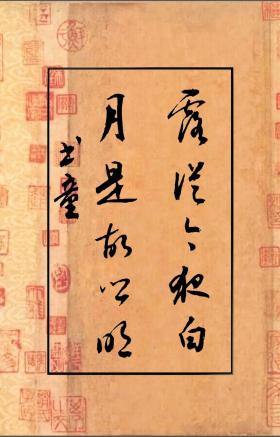 露从今夜白
月是故乡明
书童